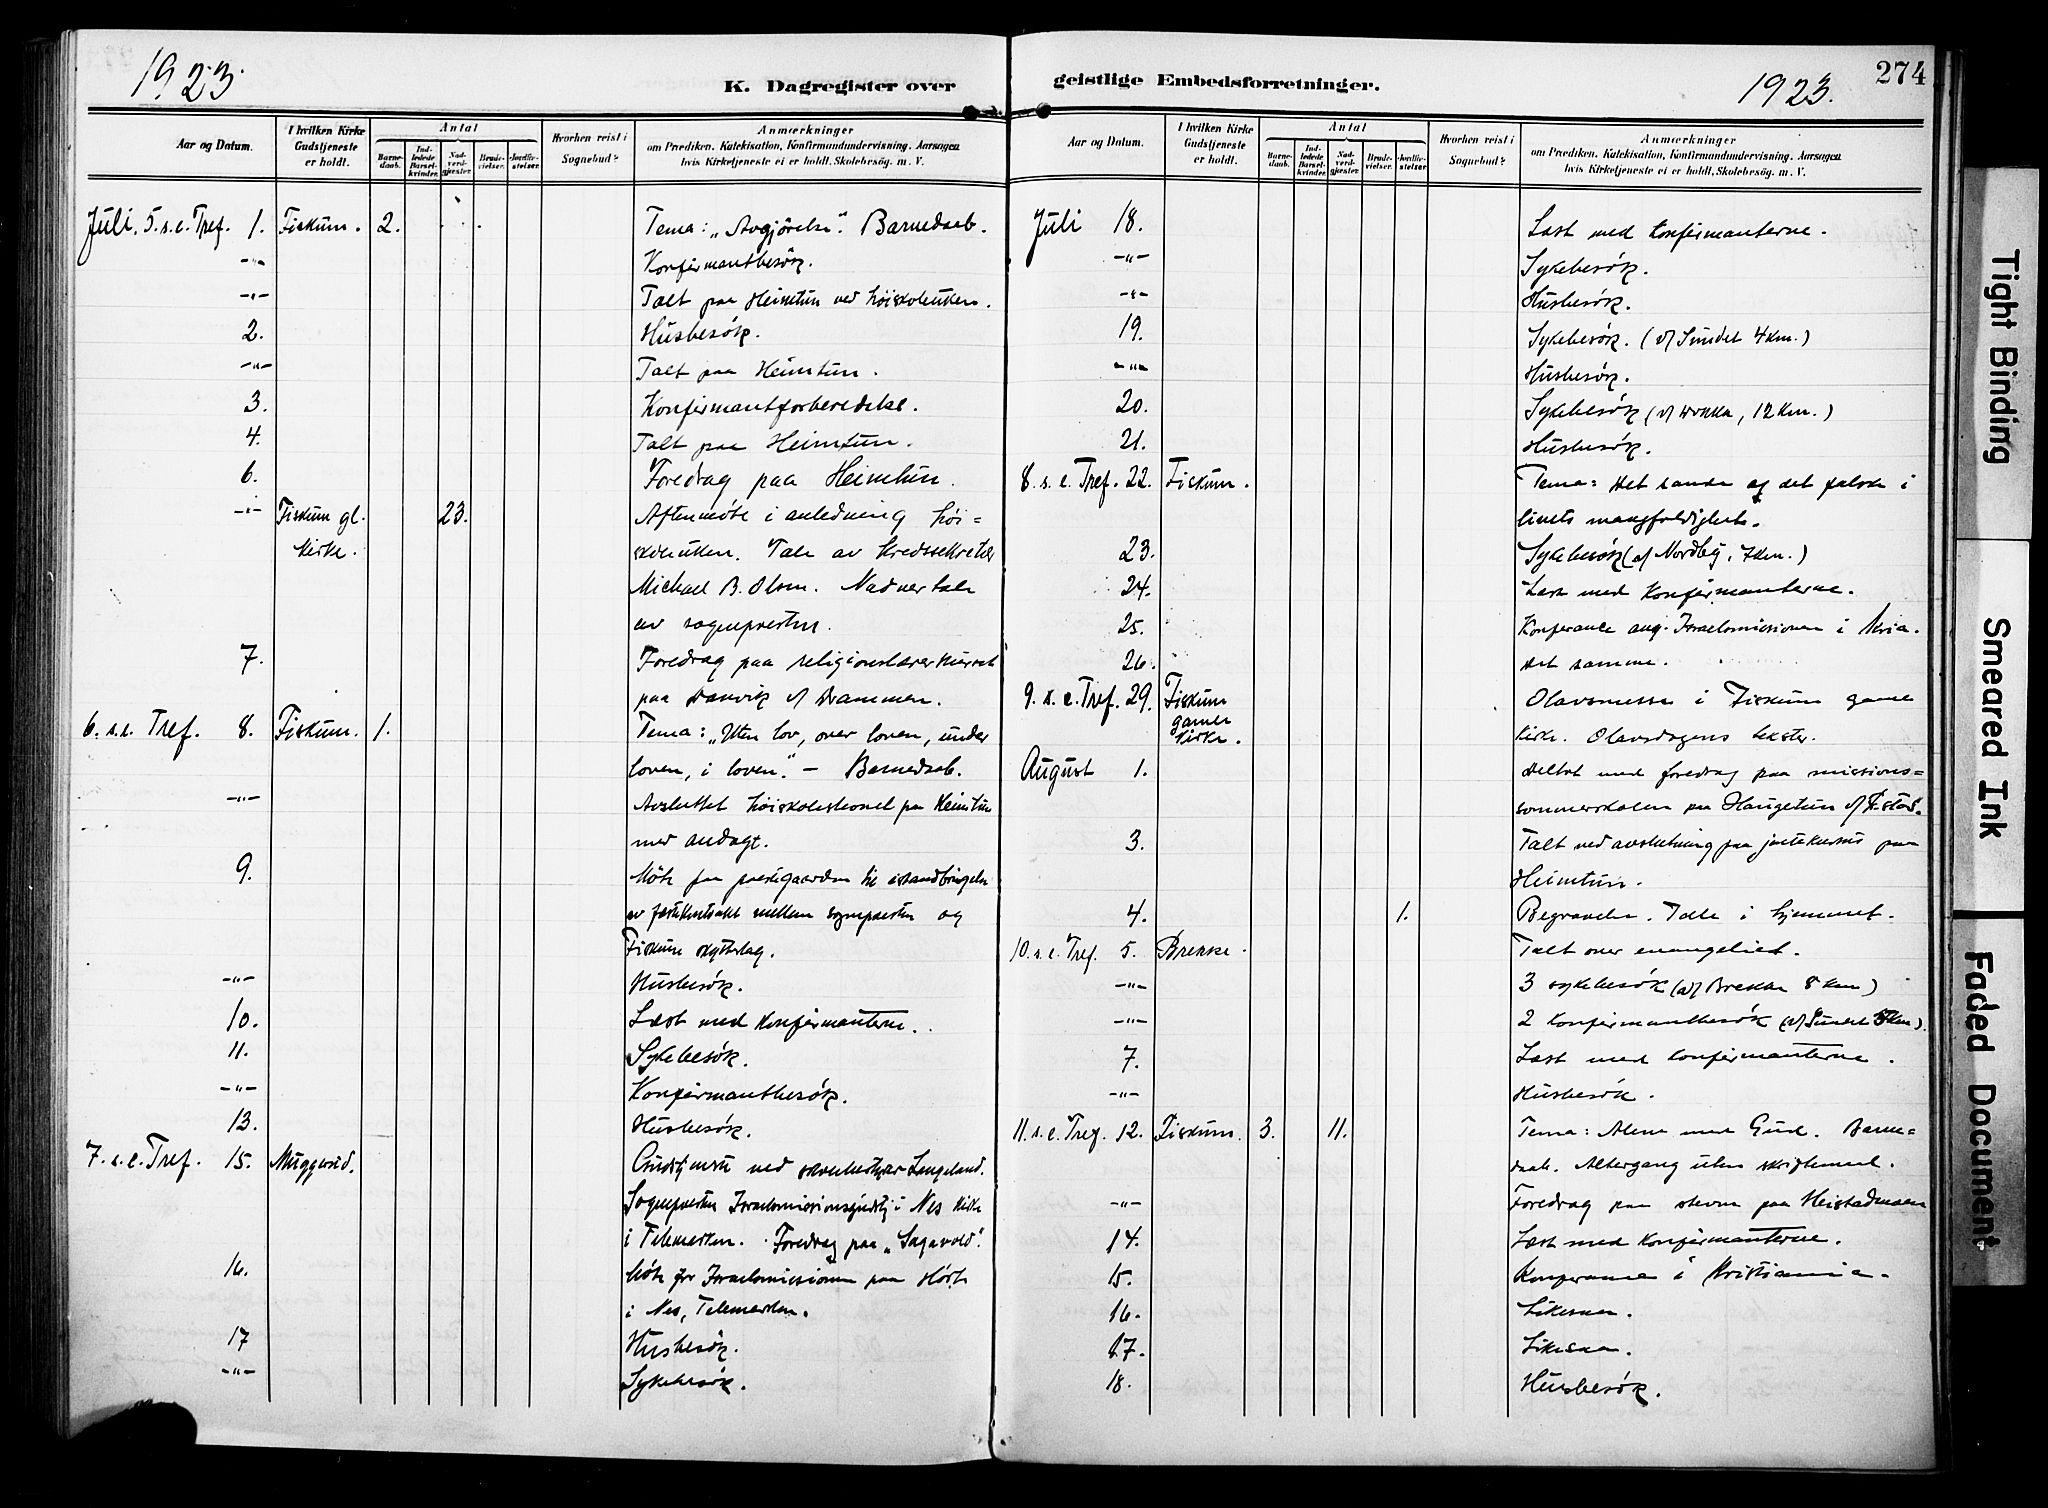 1923.
K. Dagregister over
Aar og Datum.
I hvilken Kirke Gudstjeneste er holdt.
Antal
Barnedaab.
Indledede Barselkvinder.
Nadverdgjester.
Brudevielser.
Jordfæstelser.
Hvorhen reist i Sognebud?
Anmærkninger
om Prædiken, Katekisation, Konfirmandundervisning, Aarsagen
hvis Kirketjeneste ei er holdt, Skolebesøg. m. V.
Juli. 5. s. e. Tref. 1. Fiskum. 2. Tema: „Avgjörelse". Barnedaab.
-"- Konfirmantbesök.
-"- Talt paa Heimtun ved höiskoleuken.
2. Husbesök.
-"- Talt paa Heimtun.
3. Konfirmantforberedelse.
4. Talt paa Heimtun.
6. Foredrag paa Heimtun.
-"- Fiskum gl. 23. Aftenmöte i anledning höi=
kirke. skoleuken. Tale av kredssekretær
Michael B. Olsen. Nadvertale
av sognepresten.
7. Foredrag paa religionslærerkurset
paa Danvik v/ Drammen.
6. s. e. Tref. 8. Fiskum. 1. Tema: „Uten lov, over loven, under
loven, i loven." – Barnedaab.
-"- Avsluttet höiskolestevnet paa Heimtun
med andagt.
9. Möte paa prestegaarden til istandbringelse
av festekontrakt mellem sognepresten og
Fiskum skytterlag.
-"- Husbesök.
10. Læst med konfirmanterne.
11. Sykebesök.
-"- Konfirmantbesök.
13. Husbesök.
7. s. e. Tref. 15. Muggerud. Gudstjeneste ved skolebestyrer Langeland.
Sognepresten Israelsmissionsgudstj. i Nes kirke
i Telemarken. Foredrag paa „Sagavold".
16. Möte for Israelsmissionen paa Hörte
i Nes, Telemarken.
17 Husbesök.
-"- Sykebesök.
geistlige Embedsforretninger.
1923.
274
Aar og Datum.
I hvilken Kirke Gudstjeneste er holdt.
Antal
Barnedaab.
Indledede Barselkvinder.
Nadverdgjester.
Brudevielser.
Jordfæstelser
Hvorhen reist i Sognebud?
Anmærkninger
om Prædiken, Katekisation, Konfirmandundervisning, Aarsagen
hvis Kirketjeneste ei er holdt, Skolebesøg. m. V.
Juli 18. Læst med konfirmanterne.
-"- Sykebesök.
-"- Husbesök.
19. Sykebesök. (v/ Sundet 4 km.)
-"- Husbesök.
20. Sykebesök (v/ 12 km.)
21. Husbesök.
8. s. e. Tref. 22. Fiskum. Tema: Det sande og det falske i
livets mangfoldighet.
23. Sykebesök (v/ Nordby, 7 km.)
24. Læst med konfirmanterne.
25. Konferance ang. Israelsmissionen i Kria.
26. Det samme.
9. s. e. Tref. 29. Fiskum Olavsmesse i Fiskum gamle
gamle kirke. kirke. Olavsdagens tekster.
August 1. Deltat med foredrag paa missions=
sommerskolen paa Haugetun v/ F.stad.
3. Talt ved avslutning paa kursus paa
Heimtun.
4. 1. Begravelse. Tale i hjemmet.
10. s. e. Tref. 5. Brekke. Talt over evangeliet.
-"- 3 sykebesök (v/ Brekke 8 km)
-"- 2 konfirmantbesök (v/ Sundet km).
7. Læst med konfirmanterne.
-"- Husbesök.
11. s. e. Tref. 12. Fiskum. 3. 11. Tema: Alene med Gud. Barne=
daab. Altergang uten skriftemaal.
-"- Foredrag paa stevne paa Heistadmoen
14. Læst med konfirmanterne.
15. Konferanse i Kristiania.
16. Likesaa.
17. Likesaa.
18. Husbesök.
Tight Binding
Smeared Ink
Faded Document